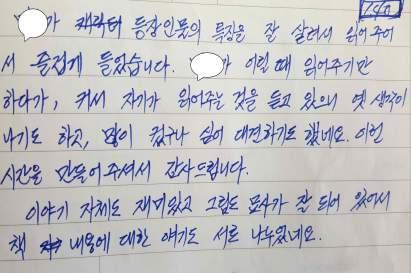 가 등장인물의 특징을 잘 살려서 읽어주어
서 즐겁게 들었습니다. 가 어릴 때 읽어주기만
하다가, 커서 자기가 읽어주는 것을 듣고 있으니 옛 생각이
나기도 하고, 많이 컸구나 싶어 대견하기도 했네요. 이런
시간을 만들어주셔서 감사드립니다.
이야기 자체도 재미있고 그림도 묘사가 잘 되어 있어서
책 내용에 대한 얘기도 서로 나누었네요.